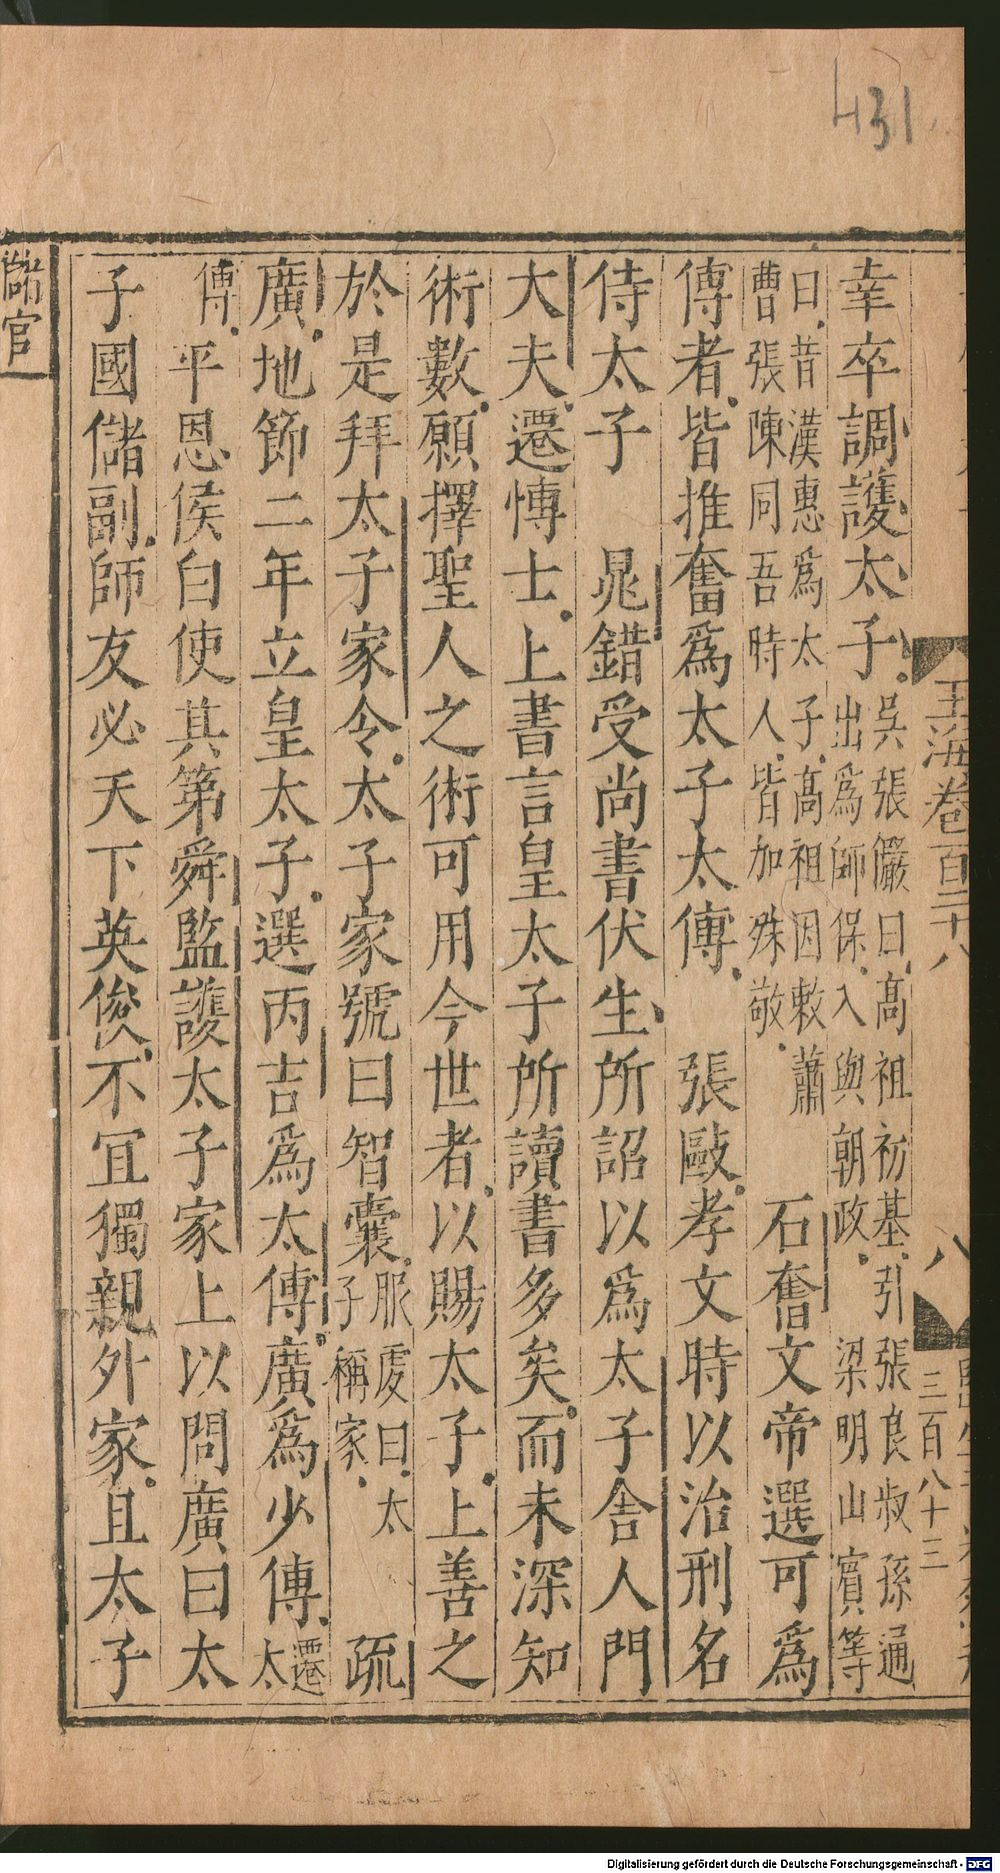 431
玉海卷百二十八
八
三百八十三
幸卒調護太子吳張儼曰高祖初基引張良叔孫通出為師保入與朝政梁明山賓等
曰昔漢惠為太子高祖因敕蕭曹張陳同吾時人皆加殊敬 石奮文帝選可為
傅者皆推奮為太子太傅 張歐孝文時以治刑名
侍太子 晁錯受尚書伏生所詔以為太子舍人門
大夫遷博士上書言皇太子所讀書多矣而未深知
術數願擇聖人之術可用今世者以賜太子上善之
於是拜太子家令太子家號曰智囊服虔曰太子稱家 疏
廣地節二年立皇太子選丙吉為太傅廣為少傅遷太
傅 平恩侯白使其第舜監護太子家上以問廣曰太
子國儲副師友必天下英俊不宜獨親外家且太子
儲官
Digitalisierung gefördert durch die Deutsche Forschungsgemeinschaft - DFG